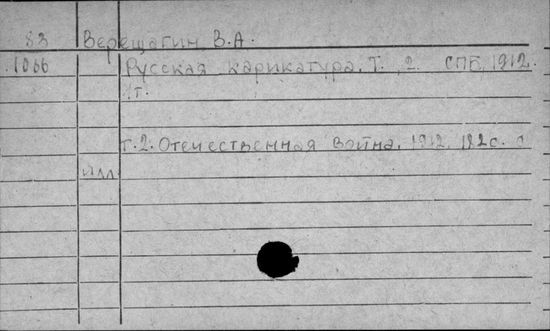 83 Верещагин, В.А.
1066 Русская карикатура. Т. 2. СПб, 1912.
1т.
т.2. Отечественная война. 1912. 192с. с
илл